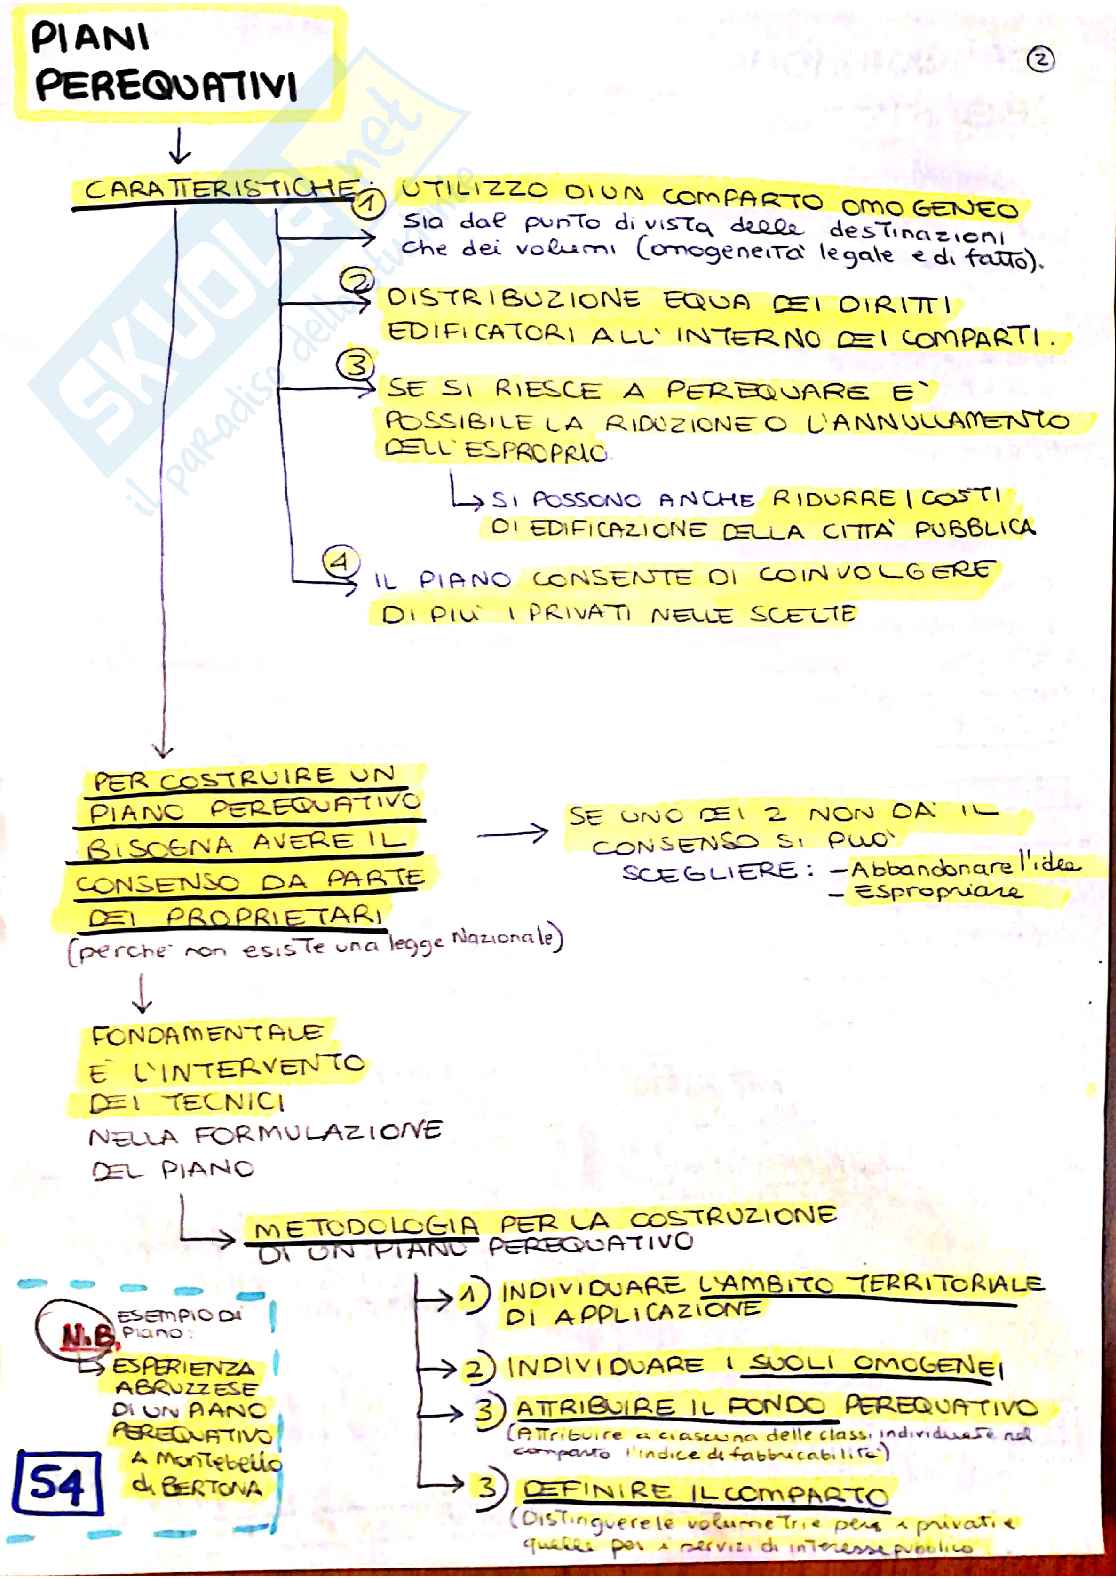 PIANI
PEREQUATIVI
2
CARATTERISTICHE:
1 UTILIZZO DI UN COMPARTO OMOGENEO
sia dal punto di vista delle destinazioni
che dei volumi (omogeneità legale e di fatto).
2
DISTRIBUZIONE EQUA DEI DIRITTI
EDIFICATORI ALL'INTERNO DEI COMPARTI.
3
SE SI RIESCE A PEREQUARE E'
POSSIBILE LA RIDUZIONE O L'ANNULLAMENTO
DELL'ESPROPRIO
SI POSSONO ANCHE RIDURRE I COSTI
DI EDIFICAZIONE DELLA CITTÀ PUBBLICA
4
IL PIANO CONSENTE DI COINVOLGERE
DI PIU' I PRIVATI NELLE SCELTE
PER COSTRUIRE UN
PIANO PEREQUATIVO
BISOGNA AVERE IL
CONSENSO DA PARTE
DEI PROPRIETARI
(perche' non esiste una legge Nazionale)
SE UNO DEI 2 NON DA' IL
CONSENSO SI PUO'
SCEGLIERE: - Abbandonare l'idea
- Espropriare
FONDAMENTALE
E' L'INTERVENTO
DEI TECNICI
NELLA FORMULAZIONE
DEL PIANO
METODOLOGIA PER LA COSTRUZIONE
DI UN PIANO PEREQUATIVO
1) INDIVIDUARE L'AMBITO TERRITORIALE
DI APPLICAZIONE
2) INDIVIDUARE I SUOLI OMOGENEI
3) ATTRIBUIRE IL FONDO PEREQUATIVO
(Attribuire a ciascuna delle classi individuate nel
comparto l'indice di fabbricabilità)
3) DEFINIRE IL COMPARTO
(Distinguere le volumetrie per i privati e
quelle per i servizi di interesse pubblico
N.B. ESEMPIO DI
Piano:
ESPERIENZA
ABRUZZESE
DI UN PIANO
PEREQUATIVO
A Montebello
di BERTONA
54
SKUOLA.net
il paradiso dello studente